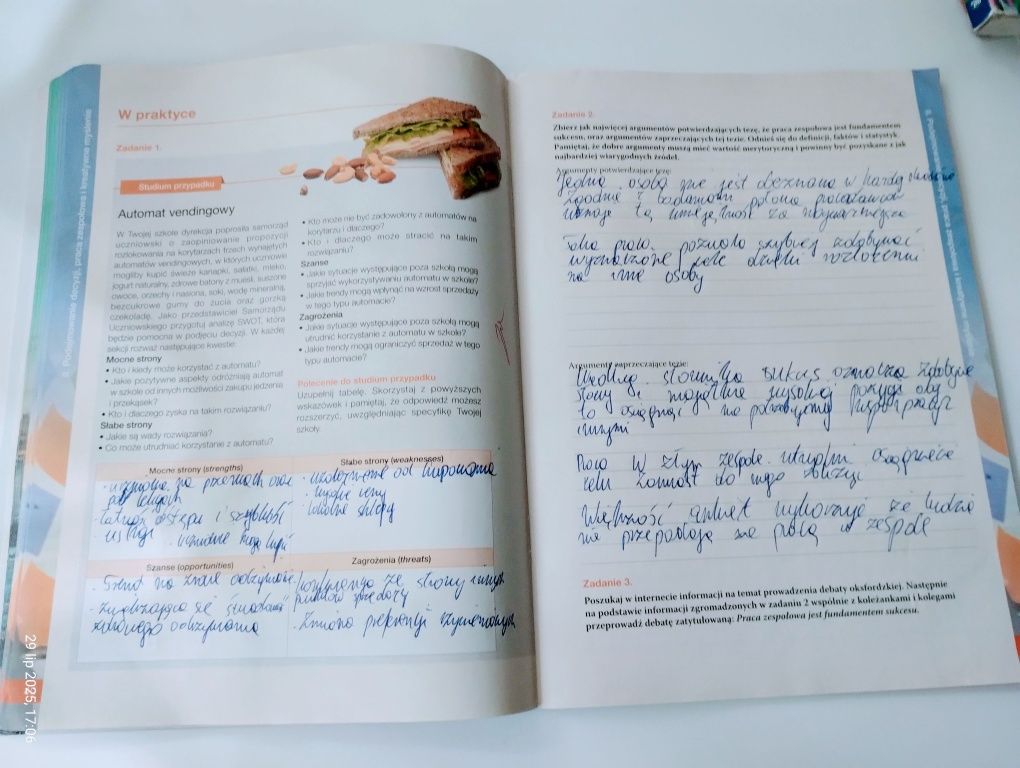 II. Podejmowanie decyzji, praca zespołowa i kreatywne myślenie
W praktyce
Zadanie 1.
Studium przypadku
Automat vendingowy
W Twojej szkole dyrekcja poprosiła samorząd
uczniowski o zaopiniowanie propozycji
rozlokowania na korytarzach trzech wynajętych
automatów vendingowych, w których uczniowie
mogliby kupić świeże kanapki, sałatki, mleko,
jogurt naturalny, zdrowe batony z musli, suszone
owoce, orzechy i nasiona, soki, wodę mineralną,
bezcukrowe gumy do żucia oraz gorzką
czekoladę. Jako przedstawiciel Samorządu
Uczniowskiego przygotuj analizę SWOT, która
będzie pomocna w podjęciu decyzji. W każdej
sekcji rozważ następujące kwestie:
Mocne strony
• Kto i kiedy może korzystać z automatu?
• Jakie pozytywne aspekty odróżniają automat
w szkole od innych możliwości zakupu jedzenia
i przekąsek?
• Kto i dlaczego zyska na takim rozwiązaniu?
Słabe strony
• Jakie są wady rozwiązania?
• Co może utrudniać korzystanie z automatu?
• Kto może nie być zadowolony z automatów na
korytarzu i dlaczego?
• Kto i dlaczego może stracić na takim
rozwiązaniu?
Szanse
• Jakie sytuacje występujące poza szkołą mogą
sprzyjać wykorzystywaniu automatu w szkole?
• Jakie trendy mogą wpłynąć na wzrost sprzedaży
w tego typu automacie?
Zagrożenia
• Jakie sytuacje występujące poza szkołą mogą
utrudnić korzystanie z automatu w szkole?
• Jakie trendy mogą ograniczyć sprzedaż w tego
typu automacie?
Polecenie do studium przypadku
Uzupełnij tabelę. Skorzystaj z powyższych
wskazówek i pamiętaj, że odpowiedź możesz
rozszerzyć, uwzględniając specyfikę Twojej
szkoły.
Mocne strony (strengths)
na przerwach oraz
po lekcjach
łatwość dostępu i szybkość
usługi
Słabe strony (weaknesses)
- uzależnienie od kupowania
- wysokie ceny
- lokalne sklepy
Szanse (opportunities)
- Trend na zdrowe odżywianie
- zwiększająca się świadomość
zdrowego odżywiania
Zagrożenia (threats)
konkurencja ze strony innych
punktów sprzedaży
- Zmiana preferencji żywieniowych
Zadanie 2.
Zbierz jak najwięcej argumentów potwierdzających tezę, że praca zespołowa jest fundamentem
sukcesu, oraz argumentów zaprzeczających tej tezie. Odnieś się do definicji, faktów i statystyk.
Pamiętaj, że dobre argumenty muszą mieć wartość merytoryczną i powinny być pozyskane z jak
najbardziej wiarygodnych źródeł.
Argumenty potwierdzające tezę:
Jedna osoba nie jest obeznana w każdej dziedzinie
Zgodnie z badaniami połowa pracodawców
uznaje tą umiejętność za najważniejszą
Taka praca pozwala szybciej zdobywać
wyznaczone cele dzięki rozłożeniu
na inne osoby
Argumenty zaprzeczające tezie:
Według słownika sukces oznacza zdobycie
sławy i majątku wysokiej pozycji aby
to osiągnąć nie potrzebujemy współpracy z
innymi
Praca w złym zespole utrudnia osiągnięcie
celu zamiast do niego zbliżyć
Większość ankiet wykazuje że ludzie
nie przepadają za pracą w zespole
Zadanie 3.
Poszukaj w internecie informacji na temat prowadzenia debaty oksfordzkiej. Następnie
na podstawie informacji zgromadzonych w zadaniu 2 wspólnie z koleżankami i kolegami
przeprowadź debatę zatytułowaną: Praca zespołowa jest fundamentem sukcesu.
II. Podejmowanie decyzji, praca zespołowa i kreatywne myślenie
29 lip 2025, 17:06